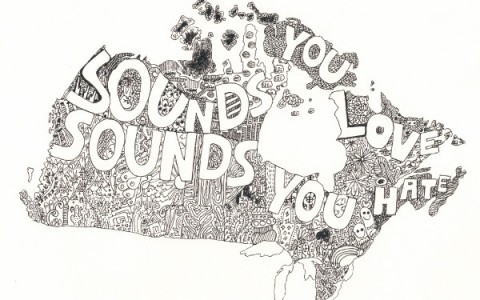 SOUNDS YOU LOVE
SOUNDS YOU HATE